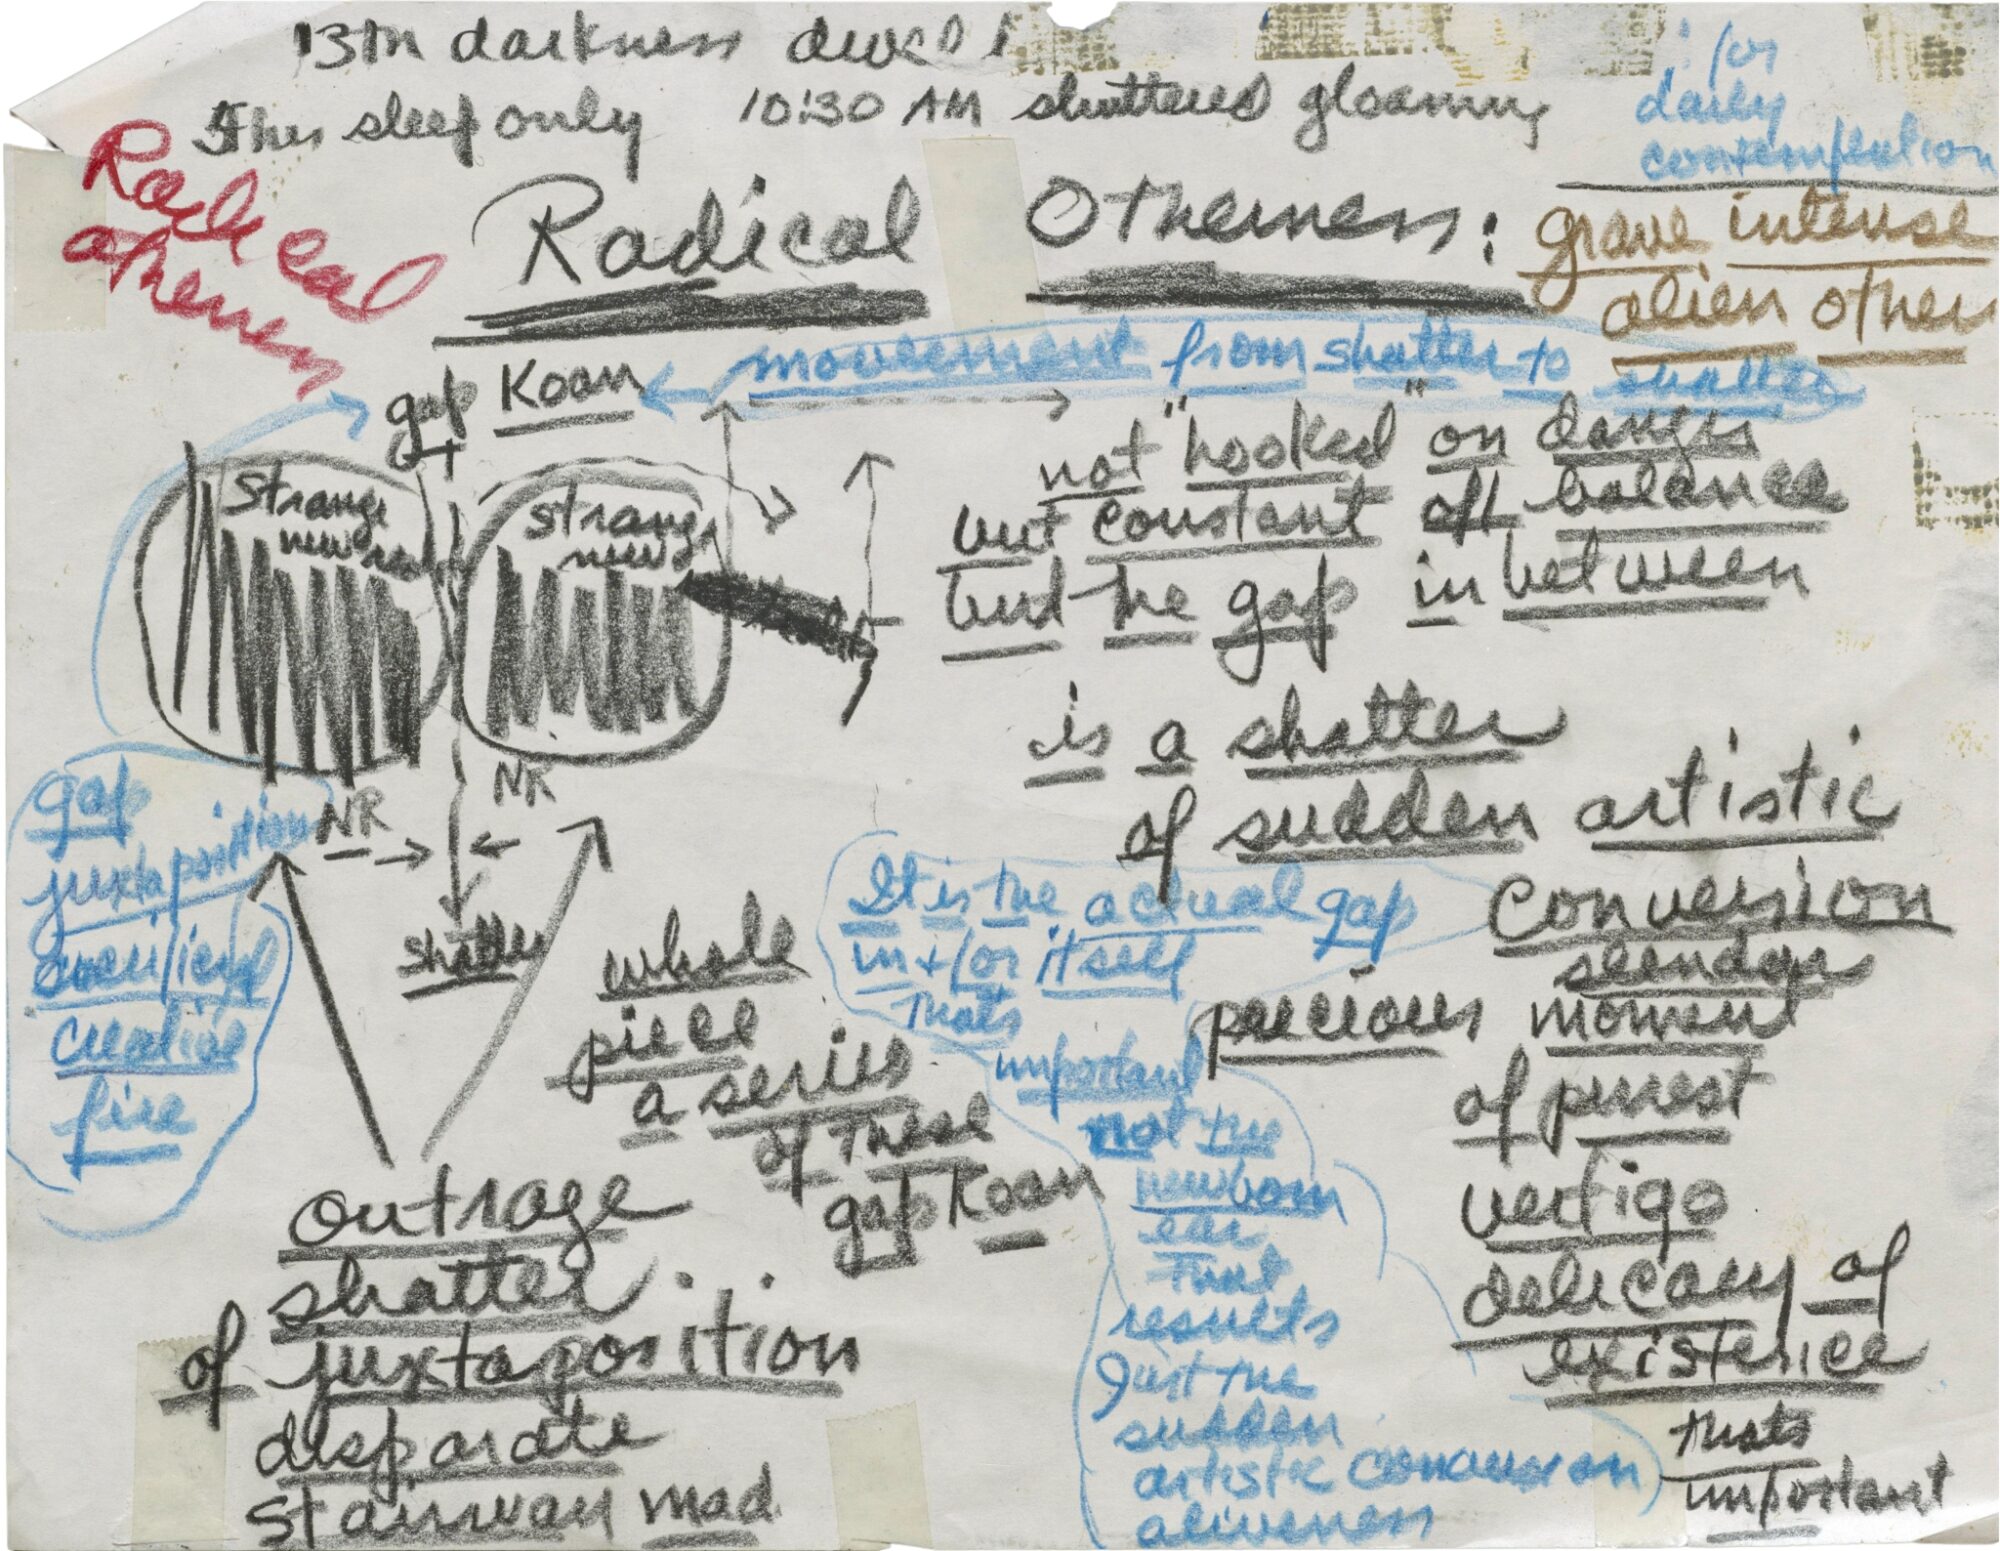 13th darkness
sleep only 10:30 AM shuttered gloaming
for
daily
contemplation
Radical
otherness
Radical Otherness:
grave intense
alien other
gap Koan
movement from shatter to shatter
not "hooked" on danger
but constant off balance
but the gap in between
is a shatter
of sudden artistic
conversion
precious moment
of purest
vertigo
delicacy of
existence
thats
important
Strange
new
Strange
new
NR
NR
shatter
gap
juxtaposition
creative
fire
whole
piece
a series
of these
gap Koan
It is the actual gap
in + for itself
thats
important
not the
newborn
ear
that
results
Just the
sudden
artistic conversion
aliveness
outrage
shatter
of juxtaposition
disparate
stairway mad